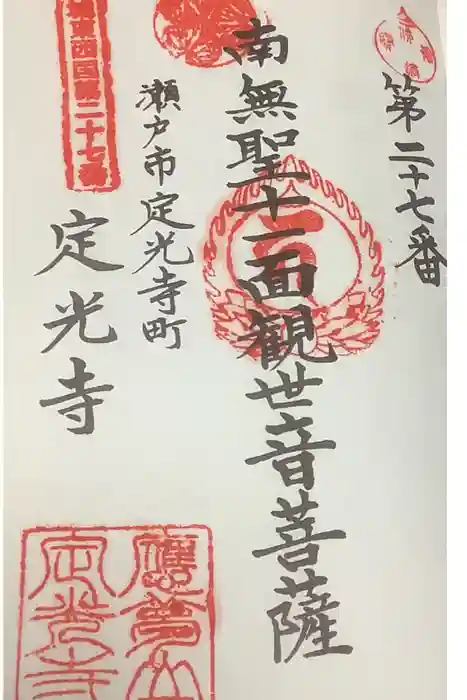 第二十七番
南無聖十一面観世音菩薩
瀬戸市定光寺町
定光寺
西国第二十七番
應夢山
定光寺